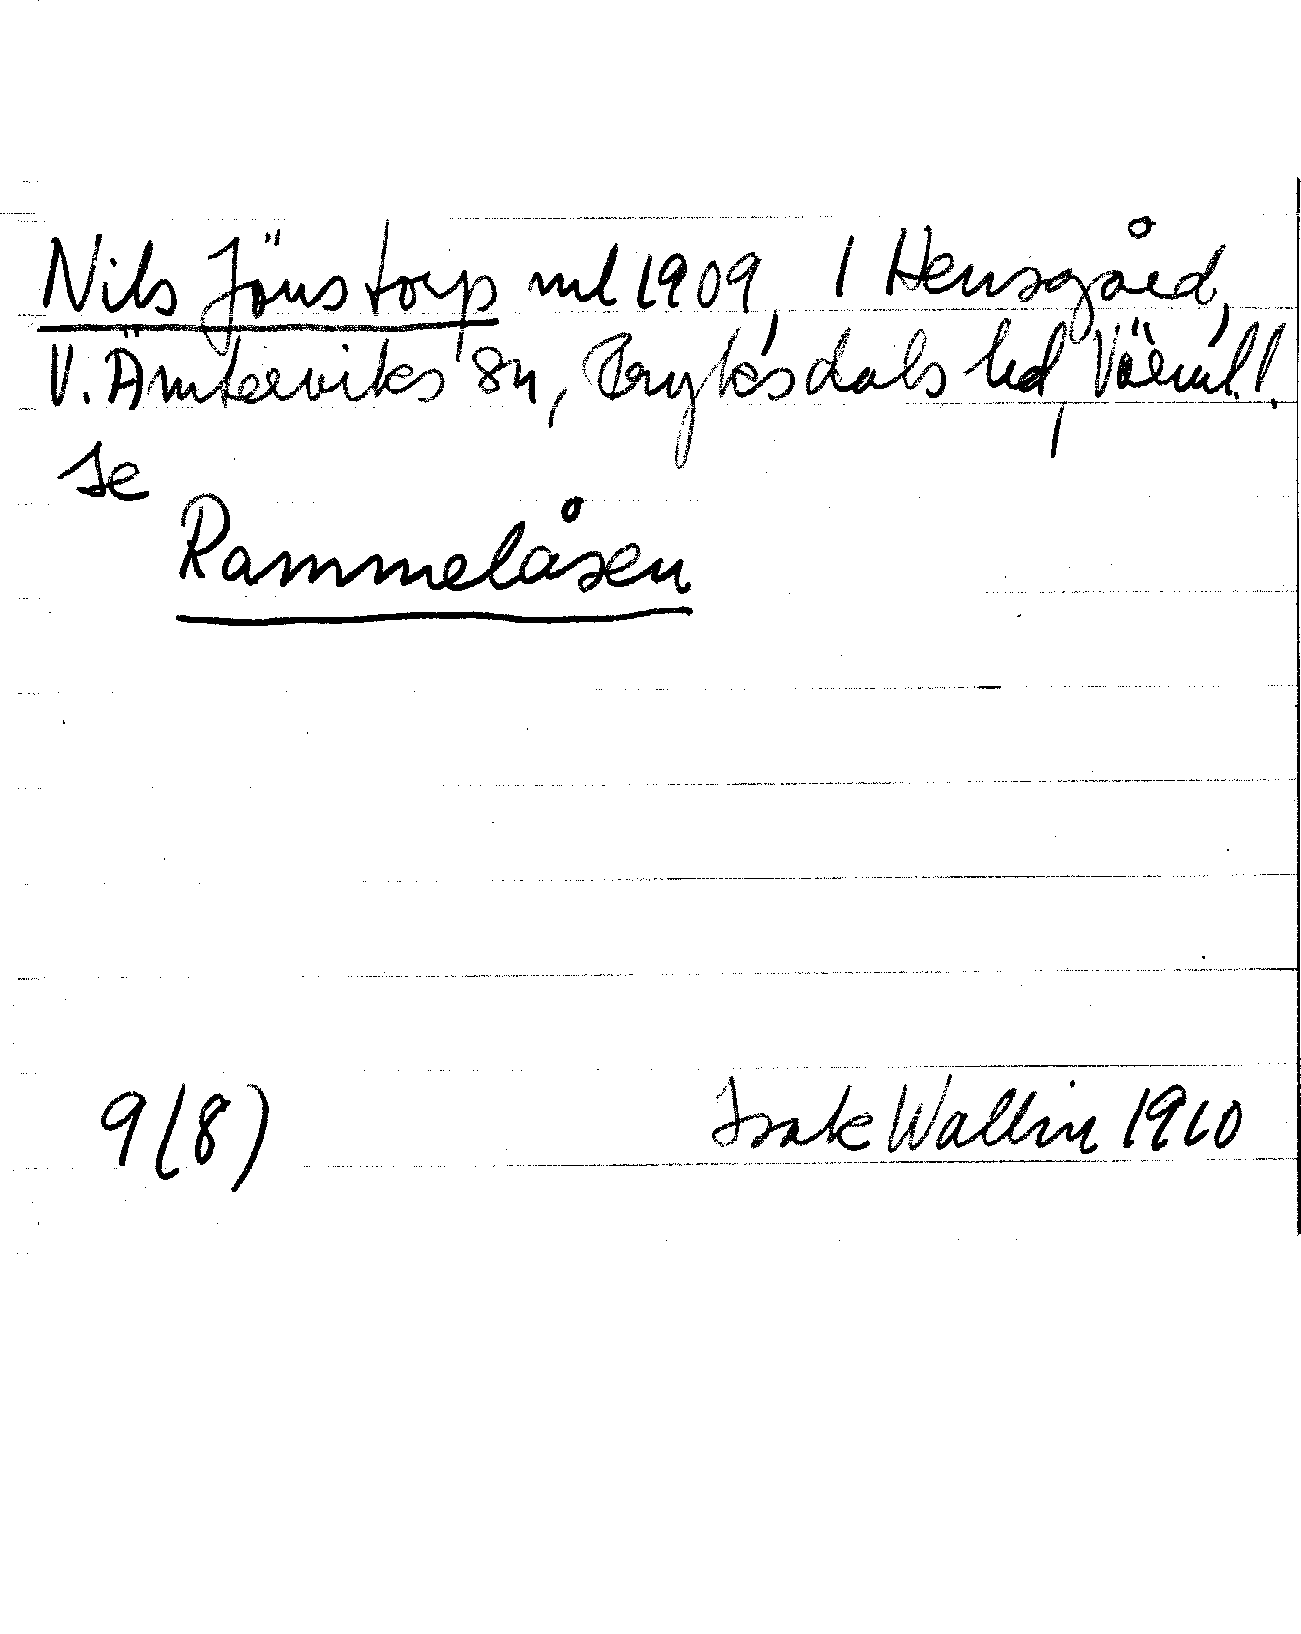 Nils Jönstorp ml 1909, 1 Hensgård,
V. Ämterviks sn, Fryksdals hd, Värml l.
se
Rammelåsen
9(8)
Isak Wallin 1910